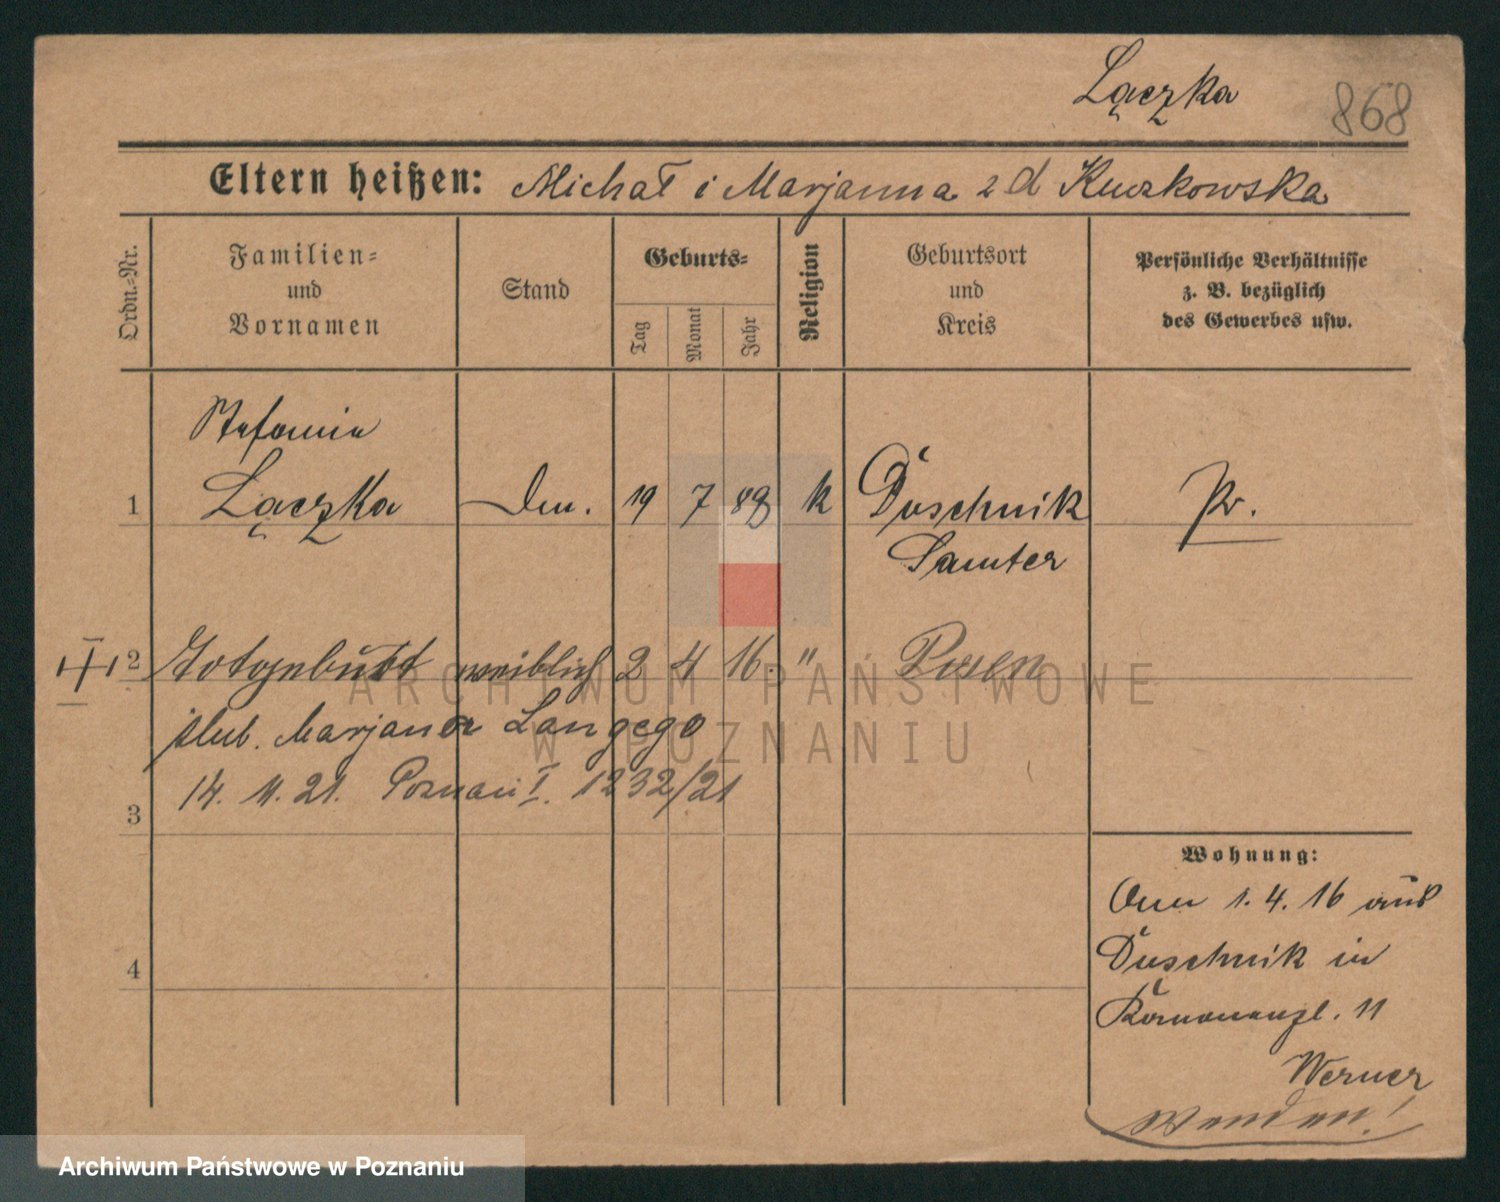 Łączka
868
Eltern heißen: Michał i Marjanna z d Kuczkowska
Ordn.-Nr.
Familien-
und
Vornamen
Stand
Geburts-
Tag
Monat
Jahr
Religion
Geburtsort
und
Kreis
Persönliche Verhältnisse
z. B. bezüglich
des Gewerbes usw.
Stefania
1 Łączka 19 7 88 k Duschnik Pr.
Samter
2 Totgeburt weiblich 2 4 16. " Posen
ślub. Marjana Langego
14. 11. 21. Poznań I. 1232/21
3
4
Wohnung:
1. 4. 16 aus
Duschnik in
11
Werner
Wenden!
ARCHIWUM PAŃSTWOWE
W POZNANIU
Archiwum Państwowe w Poznaniu